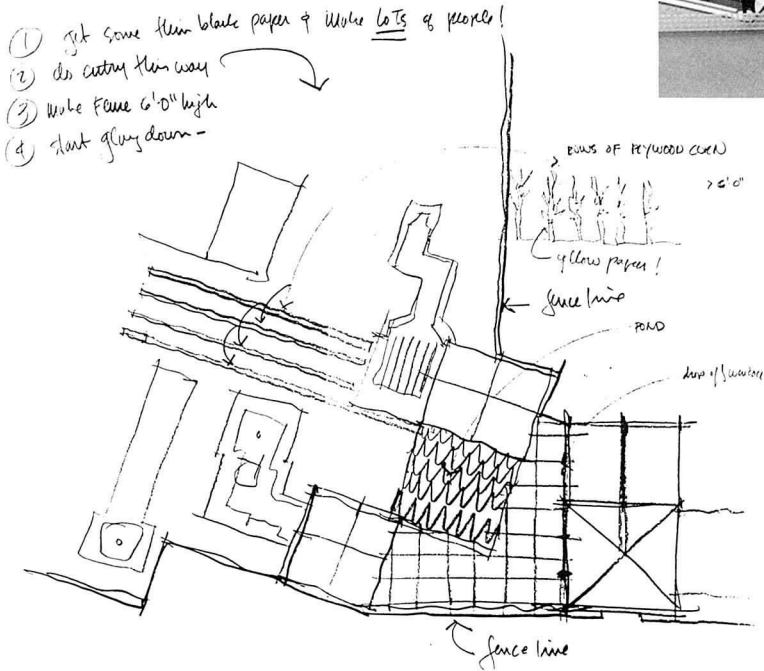 ① get some thin black paper & make LOTS of people!
② do entry this way
③ make Fence 6'-0" high
④ start gluing down -
ROWS OF PLYWOOD
> 6'-0"
yellow paper!
fence line
POND
drop off
fence line